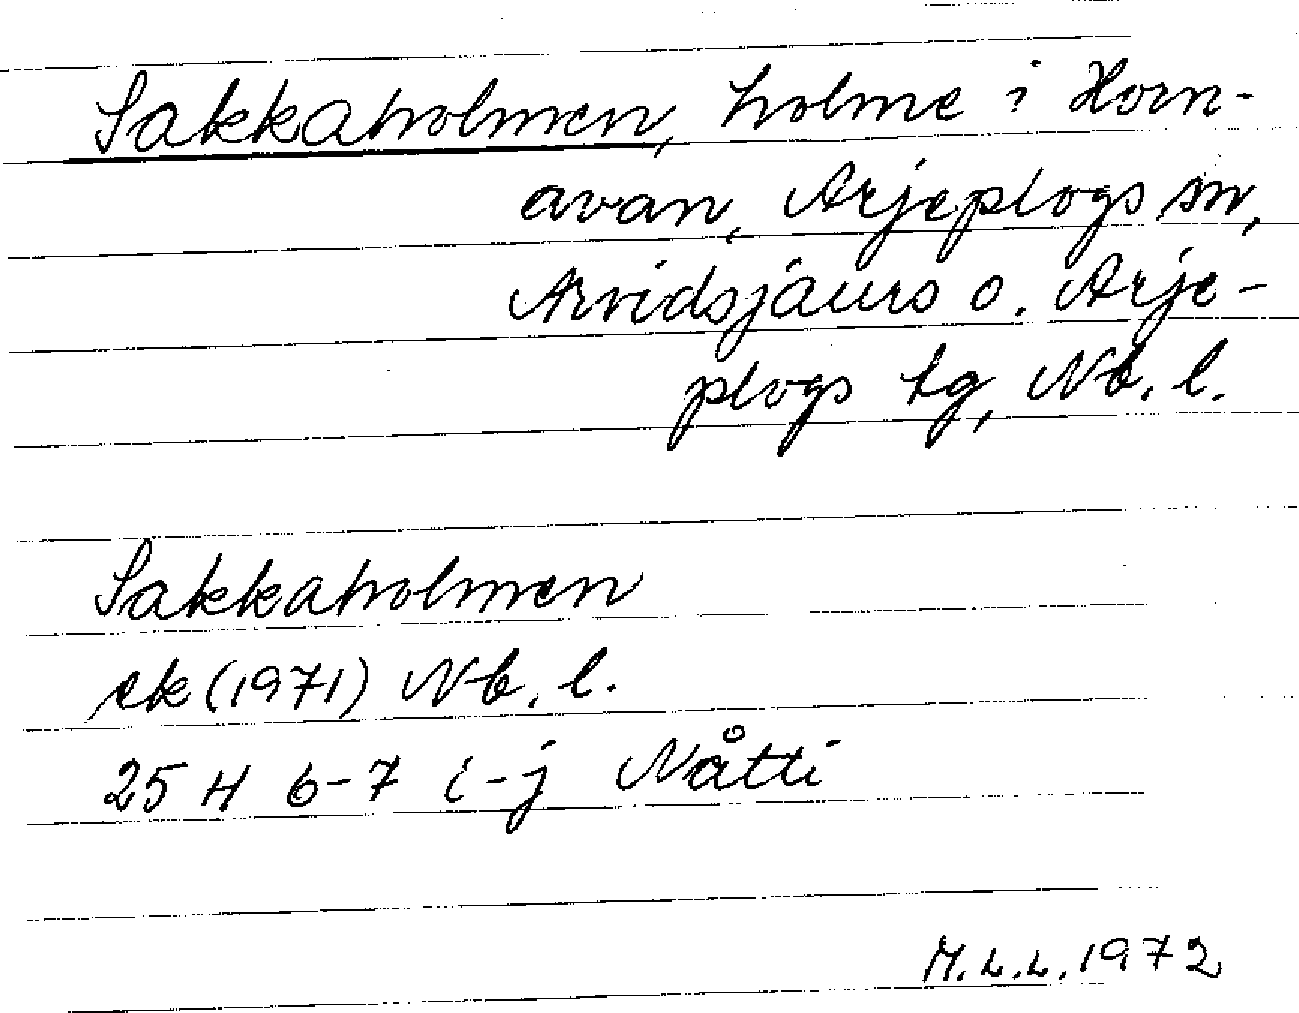 Sakkaholmen, holme i Horn-
avan, Arjeplogs sn,
Arvidsjaurs o. Arje-
plogs tg, Nb. l.
Sakkaholmen
ek (1971) Nb. l.
25 H 6-7 i-j Nåtti
M.L.L. 1972